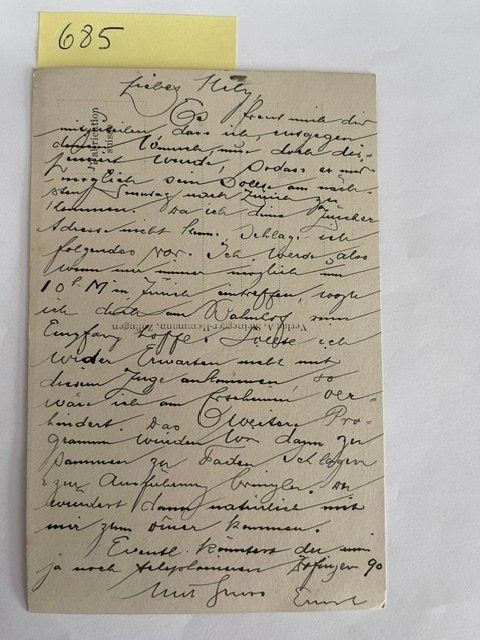 685
Liebes Hily,
Es freut mich dir
mitzuteilen, dass ich, entgegen
deinem Wunsch, nun doch dis-
pensiert wurde, sodass es mir
möglich sein sollte am näch-
sten Sonntag nach Zürich zu
kommen. Da ich deine Zürcher
Adresse nicht kenne, schlage ich
folgendes vor. Ich werde also
wenn nur immer möglich um
10h M in Zürich eintreffen, wo
ich dich am Bahnhof zum
Empfang hoffe. Sollte ich
wider Erwarten nicht mit
diesem Zuge ankommen, so
wäre ich am Erscheinen ver-
hindert. Das weitere Pro-
gramm würden wir dann zu
sammen zu Faden schlagen
& zur Ausführung bringen. Du
würdest dann natürlich mit
mir zum kommen.
Eventl. könntest du mir
ja noch telephonieren Zofingen 90
Mit Gruss Ernst
J. Fabrication
suisse
Verlag A. Steinegger-Heinmann, Zofingen